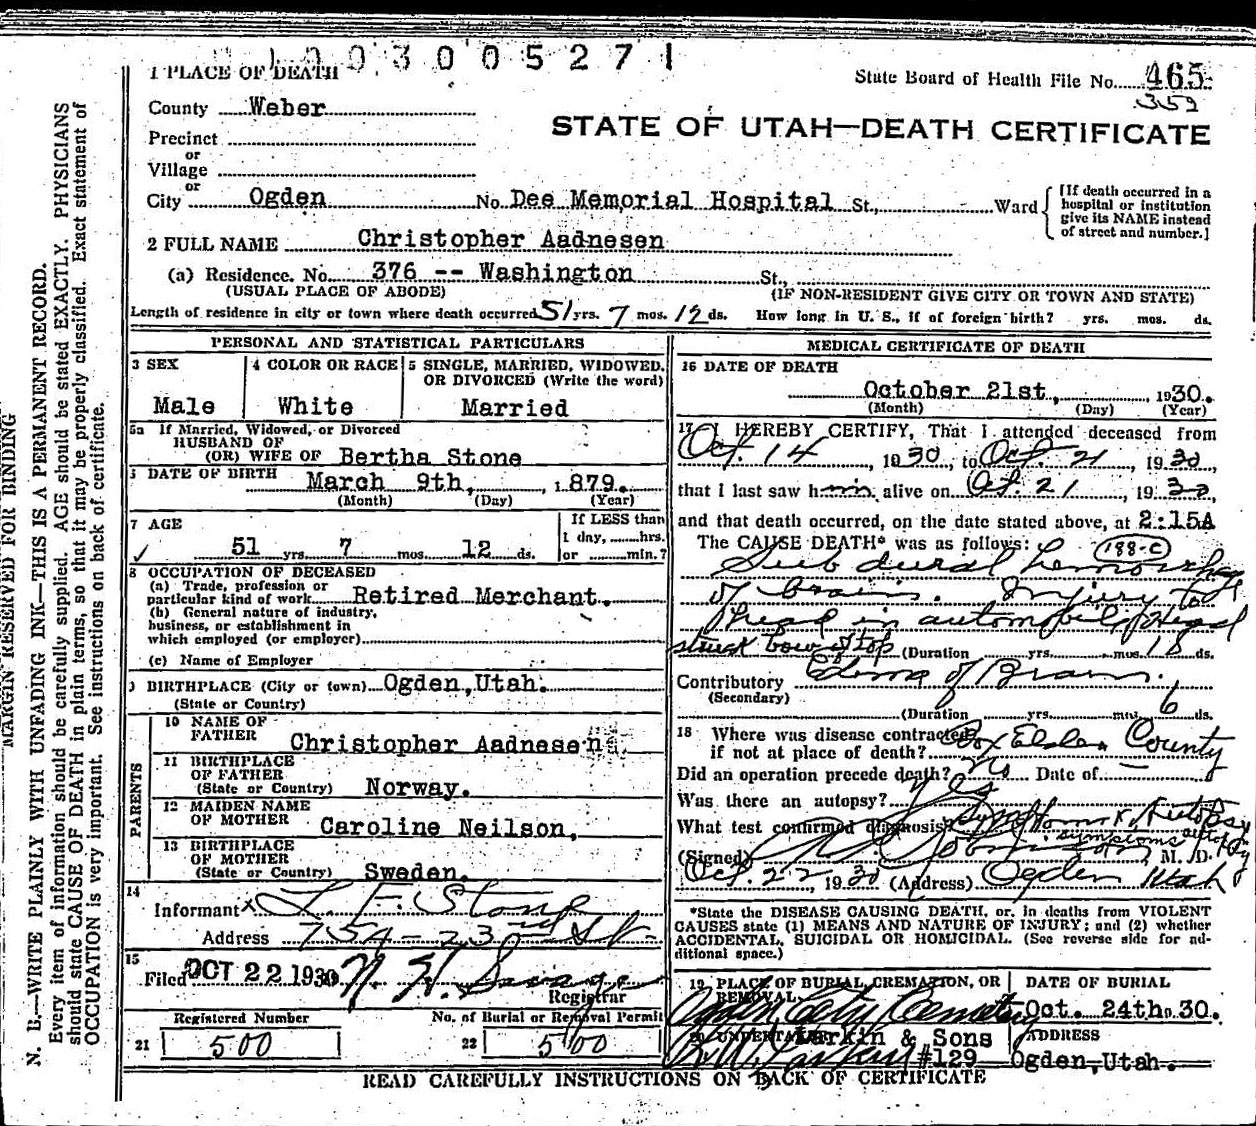 1003005271
1 PLACE OF DEATH
State Board of Health File No. 465
359
County Weber
STATE OF UTAH—DEATH CERTIFICATE
Precinct
or
Village
or
City Ogden No. Dee Memorial Hospital St., Ward
[If death occurred in a
hospital or institution
give its NAME instead
of street and number.]
2 FULL NAME Christopher Aadnesen
(a) Residence. No. 376 -- Washington St.,
(USUAL PLACE OF ABODE) (IF NON-RESIDENT GIVE CITY OR TOWN AND STATE)
Length of residence in city or town where death occurred 51 yrs. 7 mos. 12 ds. How long in U. S., if of foreign birth? yrs. mos. ds.
PERSONAL AND STATISTICAL PARTICULARS
3 SEX
Male
4 COLOR OR RACE
White
5 SINGLE, MARRIED, WIDOWED,
OR DIVORCED (Write the word)
Married
5a If Married, Widowed, or Divorced
HUSBAND OF
(OR) WIFE OF Bertha Stone
DATE OF BIRTH March 9th, 1879.
(Month) (Day) (Year)
7 AGE
✓ 51 yrs. 7 mos. 12 ds.
If LESS than
1 day, hrs.
or min.?
8 OCCUPATION OF DECEASED
(a) Trade, profession or
particular kind of work Retired Merchant.
(b) General nature of industry,
business, or establishment in
which employed (or employer)
(c) Name of Employer
9 BIRTHPLACE (City or town) Ogden, Utah.
(State or Country)
PARENTS
10 NAME OF
FATHER Christopher Aadnesen
11 BIRTHPLACE
OF FATHER
(State or Country) Norway.
12 MAIDEN NAME
OF MOTHER Caroline Neilson,
13 BIRTHPLACE
OF MOTHER
(State or Country) Sweden.
14
Informant x L. F. Stone
Address 754 - 23rd St.
15
Filed OCT 22 1930 N. H. Savage
Registrar
Registered Number
21 500
No. of Burial or Removal Permit
22 500
MEDICAL CERTIFICATE OF DEATH
16 DATE OF DEATH
October 21st, 1930.
(Month) (Day) (Year)
17 I HEREBY CERTIFY, That I attended deceased from
Oct. 14, 1930, to Oct. 21, 1930,
that I last saw him alive on Oct. 21, 1930,
and that death occurred, on the date stated above, at 2:15A
The CAUSE DEATH* was as follows: 188-C
Sub dural hemorrhage
of brain. Injury to
head in automobile, Head
struck bow of top (Duration yrs. mos. 18 ds.
Contributory Edema of Brain.
(Secondary)
(Duration yrs. mos. 6 ds.
18 Where was disease contracted
if not at place of death? Box Elder County
Did an operation precede death? no Date of —
Was there an autopsy? Yes
What test confirmed diagnosis? Symptoms & Autopsy
symptoms autopsy
(Signed) M. D.
Oct. 22, 1930 (Address) Ogden Utah
*State the DISEASE CAUSING DEATH, or, in deaths from VIOLENT
CAUSES state (1) MEANS AND NATURE OF INJURY; and (2) whether
ACCIDENTAL, SUICIDAL OR HOMICIDAL. (See reverse side for ad-
ditional space.)
19 PLACE OF BURIAL, CREMATION, OR
REMOVAL
Ogden City Cemetery
DATE OF BURIAL
Oct. 24th. 30.
20 UNDERTAKER Larkin & Sons
#129
ADDRESS
Ogden, Utah.
READ CAREFULLY INSTRUCTIONS ON BACK OF CERTIFICATE
MARGIN RESERVED FOR BINDING
N. B.—WRITE PLAINLY WITH UNFADING INK—THIS IS A PERMANENT RECORD.
Every item of information should be carefully supplied. AGE should be stated EXACTLY. PHYSICIANS
should state CAUSE OF DEATH in plain terms, so that it may be properly classified. Exact statement of
OCCUPATION is very important. See instructions on back of certificate.